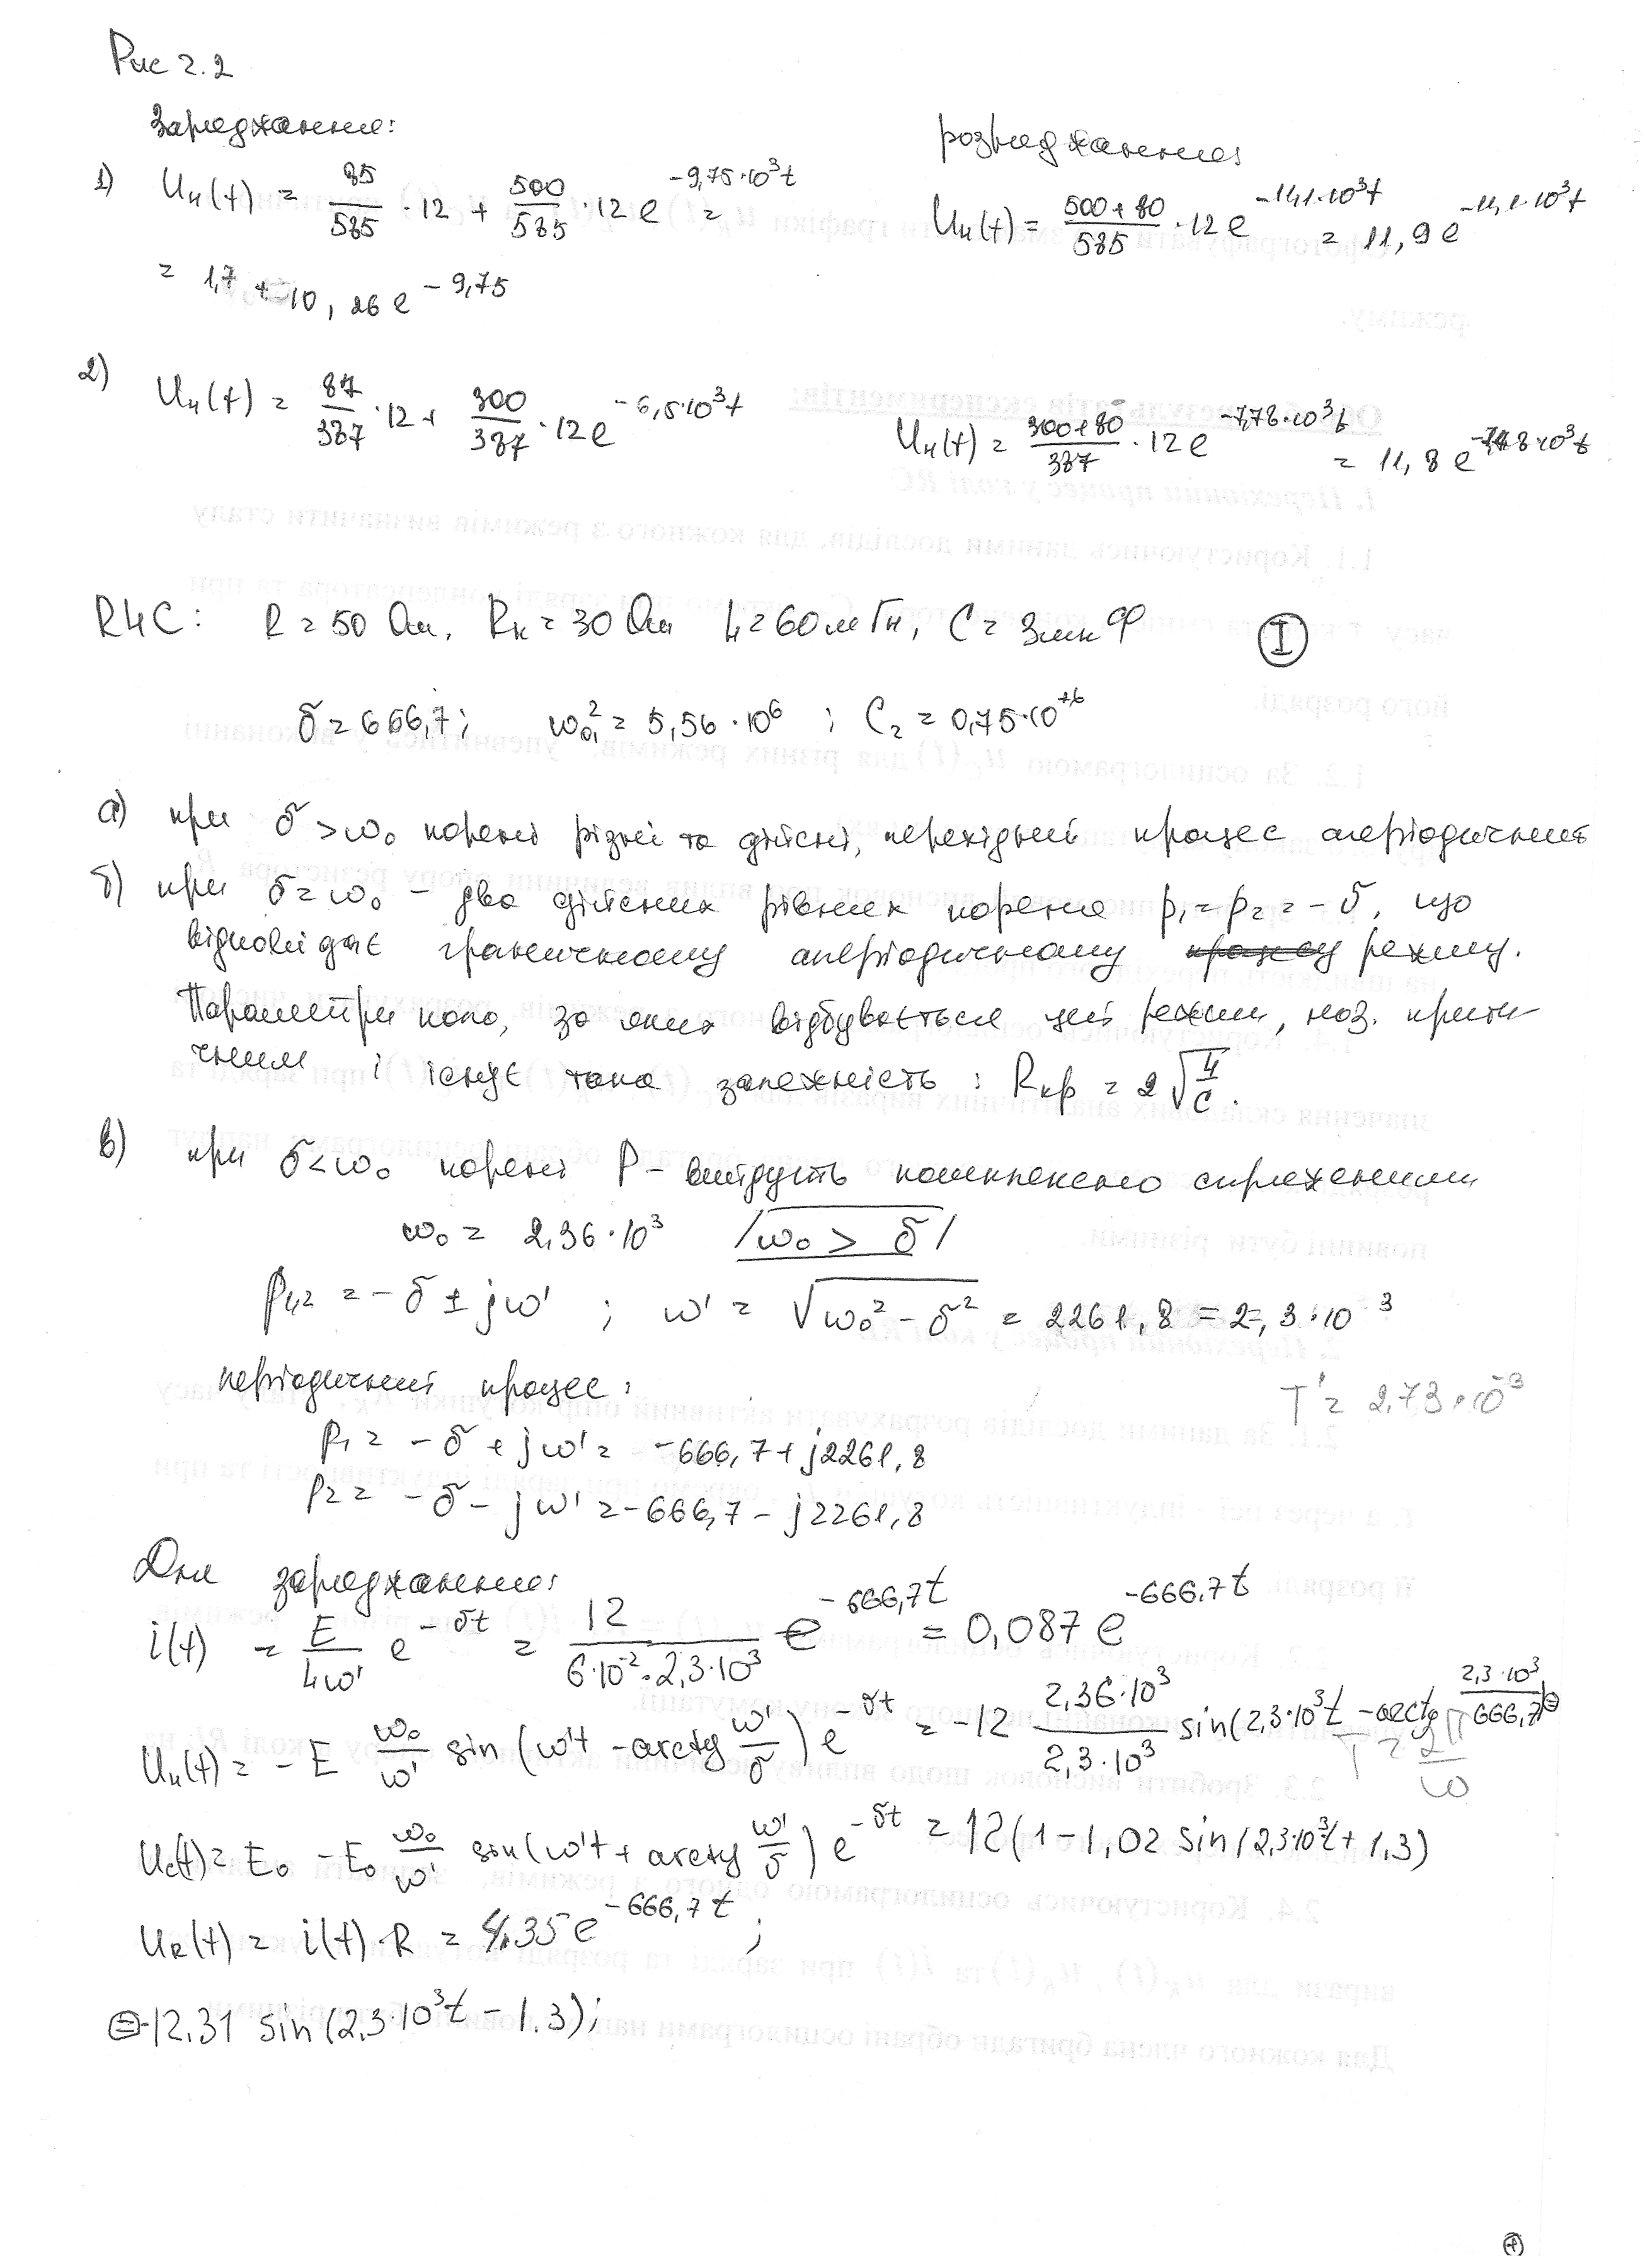 Рис 2.2
Заряджання:
розряджання:
1) Uн(t) = 85/585 · 12 + 500/585 · 12 e^(-9,75·10³t) =
= 1,7 + 10,26 e^(-9,75)
Uн(t) = (500+80)/585 · 12 e^(-11,1·10³t) = 11,9 e^(-11,1·10³t)
2) Uн(t) = 87/387 · 12 + 300/387 · 12 e^(-6,5·10³t)
Uн(t) = (300+80)/387 · 12 e^(-7,78·10³t) = 11,8 e^(-7,78·10³t)
RLC: R = 50 Ом, Rк = 30 Ом L = 60 мГн, C = 3мкФ I
δ = 666,7; ω₀₁² = 5,56 · 10⁶ ; C₂ = 0,75·10⁺⁶
а) при δ > ω₀ корені різні та дійсні, перехідний процес аперіодичний
б) при δ = ω₀ – два дійсних рівних кореня p₁ = p₂ = -δ, що
відповідає граничному аперіодичному процесу режиму.
Параметри кола, за яких відбувається цей режим, наз. крити-
чними і існує така залежність: Rкр = 2√(L/C).
в) при δ < ω₀ корені P – будуть комплексно спряженими
ω₀ = 2,36 · 10³ /ω₀ > δ/
p₁,₂ = -δ ± jω' ; ω' = √(ω₀² - δ²) = 2261,8 = 2,3·10³
періодичний процес:
T' = 2,73·10⁻³
p₁ = -δ + jω' = -666,7 + j2261,8
p₂ = -δ - jω' = -666,7 - j2261,8
Для заряджання:
i(t) = E/(Lω') e^(-δt) = 12/(6·10⁻²·2,3·10³) e^(-666,7t) = 0,087 e^(-666,7t)
Uн(t) = -E ω₀/ω' sin(ω't - arctg ω'/δ) e^(-δt) = -12 (2,36·10³)/(2,3·10³) sin(2,3·10³t - arctg (2,3·10³)/666,7) ⊜
T = 2π/ω
Uc(t) = E₀ - E₀ ω₀/ω' sin(ω't + arctg ω'/δ) e^(-δt) = 12(1 - 1,02 sin(2,3·10³t + 1,3)
UR(t) = i(t)·R = 4,35 e^(-666,7t) ;
⊜ -12,31 sin(2,3·10³t - 1,3);